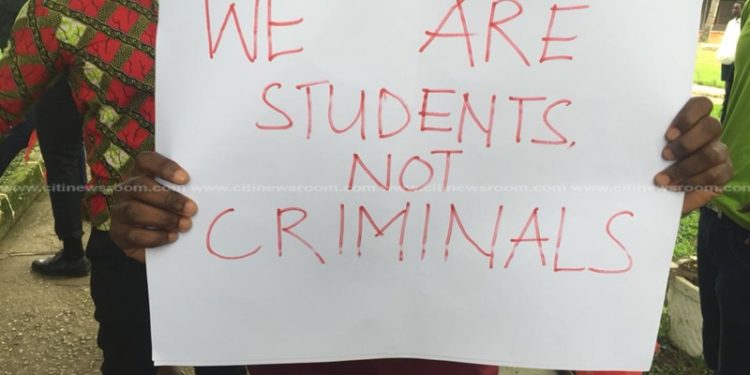 WE ARE
STUDENTS,
NOT
CRIMINALS
www.citinewsroom.com www.citinewsroom.com www.citinewsroom.com www.citinewsroom.com